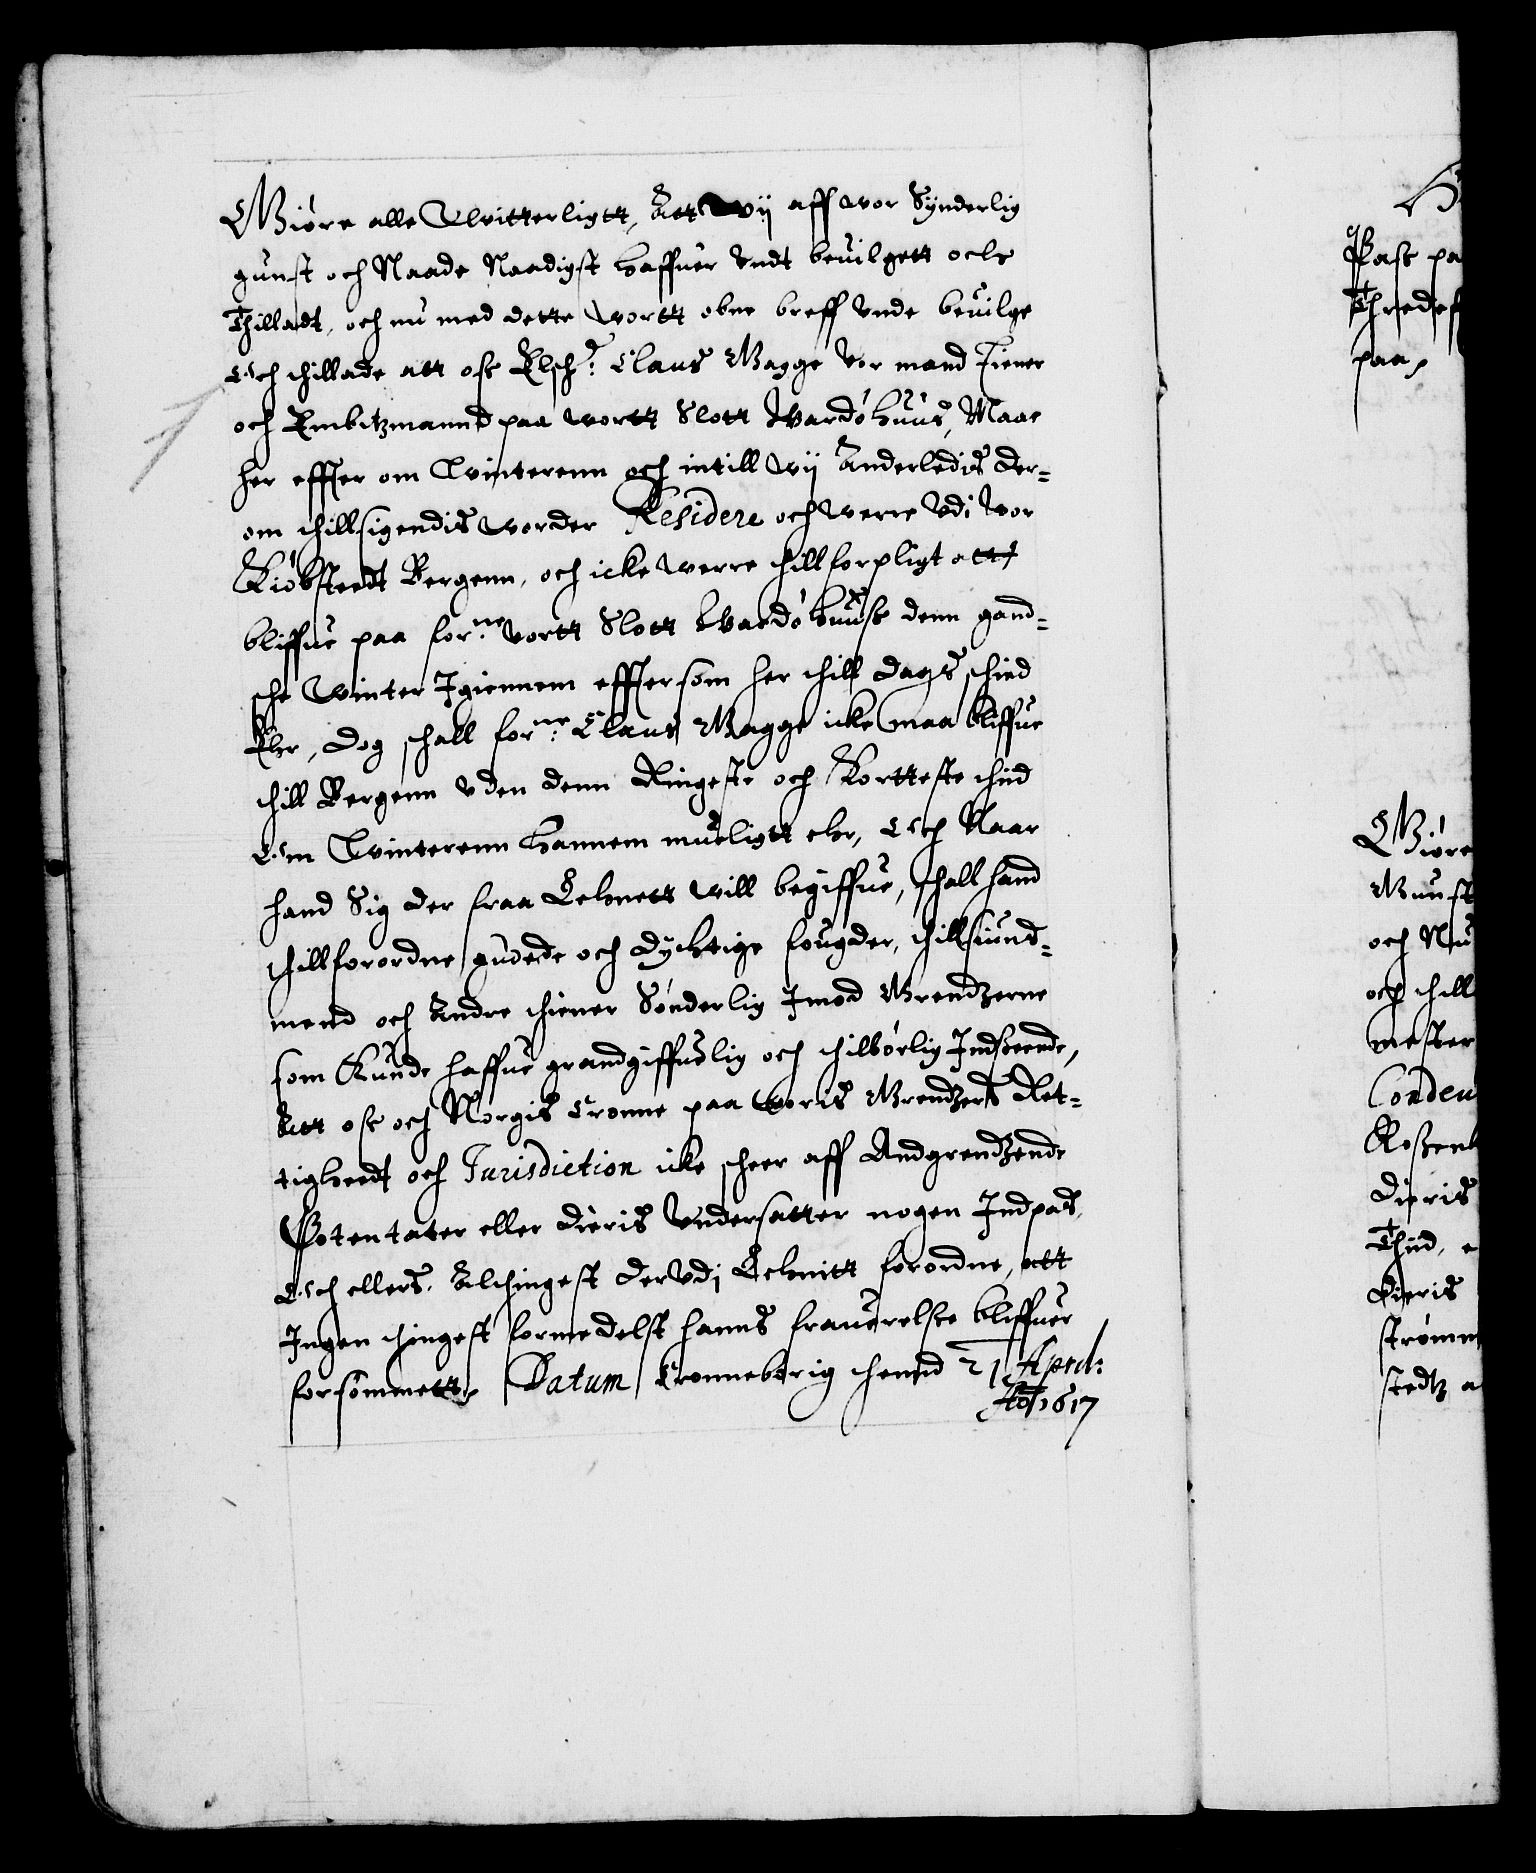 Giøre alle Witterligtt, Att Wij aff vor Synderlig
gunst och Naade Naadigst haffuer Vndt beuilgett och
Thilladt, och nu med dette wortt obne breff Vnde beuilge
Och thillade att oss Elsch: Claus Gagge Vor mand Tiener
och Embitzmannd paa wortt Slott Wardøhuus, Maae
her effter om Winterenn och intill Wij Anderledis der-
om thillsigendis worder Residere och werre Vdi Vor
Kiøbstedt Bergenn, och icke werre thillforpligt att
bliffue paa forne vortt Slott Wardøhuuss denn gand-
sche Winter Igiennem effter som her thill dags schied
Ehr, dog schall forne Claus Gagge icke maa bliffue
thill Bergenn vden denn Ringeste och Kortteste thid
Om Winterenn hannem mueligtt ehr, Och Naar
hand Sig der fraa Lehnett will begiffue, schall hand
thillforordne gudede och dychtige fougder, thillsiuns-
mend och Andre thiener Sønderlig Imod Grendzerne
som Kunde haffue grandgiffuelig och thilbørlig Indseende,
Att oss och Norgis Cronne paa woris Grendzers Ret-
tigheedt och Jurisdiction icke scheer aff Andgrendzende
Potentater eller dieris Vndersatter nogen Indpas,
Och ellers Altingest dervdj Lehnitt forordne, att
Ingen thingest formedelst hanns frauerelsse bliffuer
forsømmett, Datum Cronneborig thennd 21 April:
Ao 1617
Pass pa
paa
Giøre
Gunst
och Nu
och thill
mester
Conden
Rossen
dieris
Thid, e
dieris
strømm
stedtz a